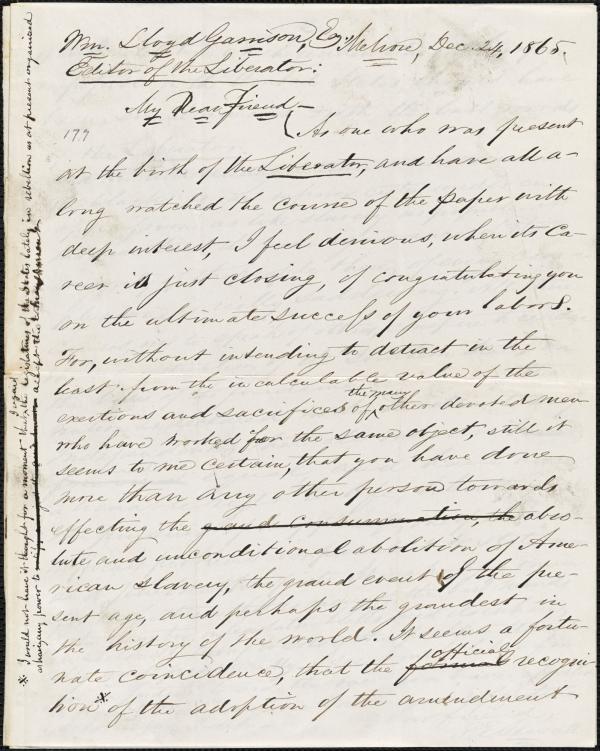 Wm. Lloyd Garrison, Esq. Melrose, Dec. 24, 1865.
Editor of the Liberator:
My Dear Friend—
177
As one who was present
at the birth of the Liberator, and have all a-
long watched the course of the paper with
deep interest, I feel desirous, when its ca-
reer is just closing, of congratulating you
on the ultimate success of your labors.
For, without intending to detract in the
least from the incalculable value of the
exertions and sacrifices of the many other devoted men
who have worked for the same object, still it
seems to me certain, that you have done
more than any other person towards
effecting the grand consummation, the abso-
lute and unconditional abolition of Ame-
rican slavery, the grand event of the pre-
sent age, and perhaps the grandest in
the history of the world. It seems a fortu-
nate coincidence, that the formal official recogni-
tion* of the adoption of the amendment
* I would not have it thought for a moment that I regard the legislatures of the States lately in rebellion as at present organized
as having any power to accept the amendment